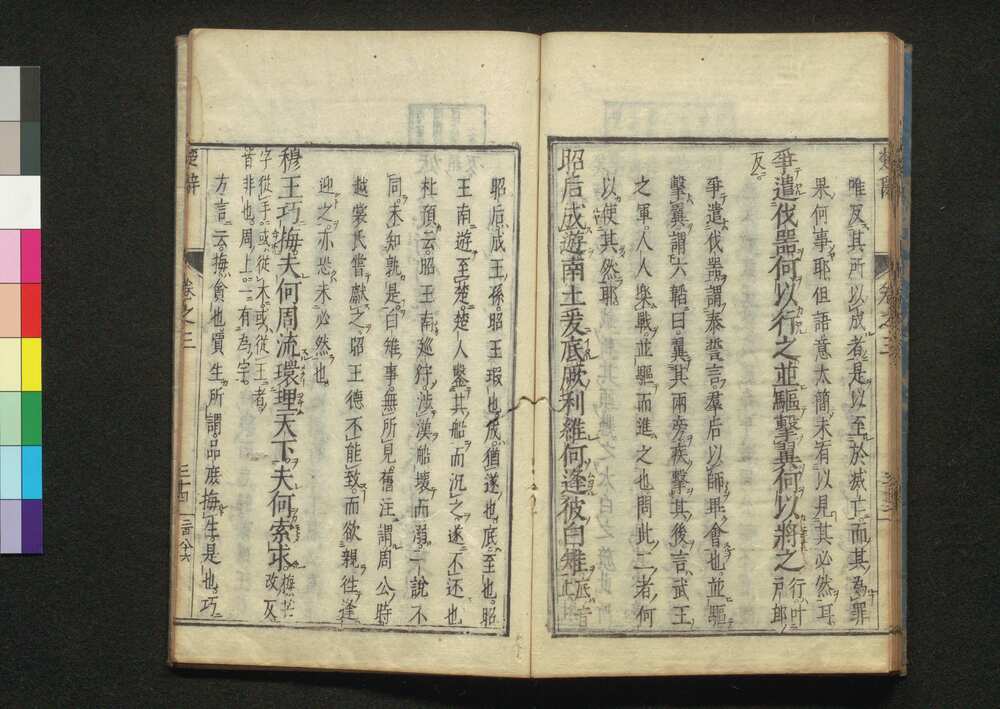 唯反其所以成者是以至於滅亡而其爲罪
果何事耶但語意太簡未有以見其必然耳
爭遣伐器何以行之並驅擊翼何以將之 行叶戸郎
反
爭遣伐器謂泰誓言羣后以師畢會也並驅
擊翼謂六韜曰翼其兩旁疾擊其後言武王
之軍人人樂戰並驅而進之也問此二者何
以使其然耶
昭后成遊南土爰底厥利維何逢彼白雉 底音止
昭后成王孫昭王瑕也成猶遂也底至也昭
王南遊至楚楚人鑿其船而沉之遂不还也
杜預云昭王南巡狩涉漢船壞而溺二說不
同未知孰是白雉事無所見舊注謂周公時
越裳氏嘗獻之昭王德不能致而欲親往逢
迎之亦恐未必然也
穆王巧梅夫何周流環理天下夫何索求 梅芒改反
字從手或從木或從王者
皆非也周上一有爲字
方言云撫貪也賈生所謂品庶撫生是也巧
楚辭 卷之三 三十四